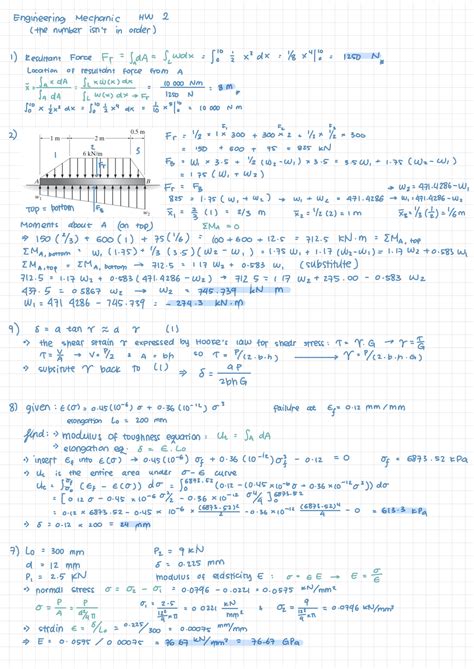 Engineering Mechanic HW 2
(the number isn't in order)
1) Resultant Force Fr = ∫A dA = ∫L wdx = ∫₀¹⁰ ½ x³ dx = 1/8 x⁴|₀¹⁰ = 1250 N
Location of resultant force from A
x̄ = ∫A x dA / ∫A dA = ∫L x w(x) dx / ∫L w(x) dx → Fr = 10 000 Nm / 1250 N = 8 m
∫₀¹⁰ x ½ x³ dx = ∫₀¹⁰ ½ x⁴ dx = 1/10 x⁵|₀¹⁰ = 10 000 Nm
2)
1 m
2 m
0.5 m
6 kN/m
1
2
3
Fr
A
B
w₂
w₁
FB
top = bottom
Fr = 1/2 × 1 × 300 + 300 × 2 + 1/2 × 1/2 × 300
= 150 + 600 + 75 = 825 kN
FB = w₁ × 3.5 + 1/2 (w₂ - w₁) × 3.5 = 3.5w₁ + 1.75 (w₂ - w₁)
= 1.75 (w₁ + w₂)
Fr = FB → w₂ = 471.4286 - w₁
825 = 1.75 (w₁ + w₂) → w₁ + w₂ = 471.4286
x̄₁ = 2/3 (1) = 2/3 m x̄₂ = 1/2 (2) = 1m
Moments about A (on top) ΣMA = 0
⇒ 150 (2/3) + 600 (1) + 75 (1/6) = 100 + 600 + 12.5 = 712.5 kN.m = ΣMA, top
ΣMA, top = ΣMA, bottom → 712.5 = 1.17 w₂ + 0.583 w₁ (substitute)
712.5 = 1.17 w₂ + 0.583 (471.4286 - w₂) → 712.5 = 1.17 w₂ + 275.00 - 0.583 w₂
437.5 = 0.5867 w₂ → w₂ = 745.739 kN m
w₁ = 471.4286 - 745.739 = -274.3 kN.m
9) δ = a tan γ ≈ a γ (1)
→ the shear strain γ expressed by Hooke's law for shear stress: τ = γ.G → γ = τ/G
τ = V/A → V = P/2 & A = bh so τ = P/(2.b.h) → γ = P/(2.b.h.G)
→ subsitute γ back to (1) ⇒ δ = aP/2bhG
8) given: ϵ(σ) = 0.45(10⁻⁶) σ + 0.36 (10⁻¹²) σ³ failure at ϵf = 0.12 mm/mm
elongation L₀ = 200 mm
find: → modulus of toughness equation: Ut = ∫A dA
→ elongation eq: δ = ϵ.L₀
→ insert ϵf into ϵ(σ) → 0.45(10⁻⁶) σf + 0.36 (10⁻¹²) σf³ - 0.12 = 0 σf = 6873.52 kPa
→ Ut is the entire area under σ - ϵ curve
Ut = ∫₀^σf (ϵf - ϵ(σ)) dσ = ∫₀^6873.52 (0.12 - (0.45×10⁻⁶σ + 0.36×10⁻¹²σ³)) dσ
= [0.12 σ - 0.45 × 10⁻⁶ σ²/2 - 0.36 × 10⁻¹² σ⁴/4]₀^6873.52
= 0.12 × 6873.52 - 0.45 × 10⁻⁶ × (6873.52)²/2 - 0.36×10⁻¹² (6873.52)⁴/4 - 0 = 613.3 kPa
→ δ = 0.12 × 200 = 24 mm
7) L₀ = 300 mm P₂ = 9 kN
d = 12 mm δ = 0.225 mm
P₁ = 2.5 kN modulus of elasticity E: σ = E ϵ → E = σ/ϵ
→ normal stress σ = σ₂ - σ₁ = 0.0796 - 0.0221 = 0.0575 kN/mm²
σ = P/A = P/(d²/4 π) σ₁ = 2.5/(12²/4 π) = 0.0221 kN/mm² & σ₂ = 9/(12²/4 π) = 0.0796 kN/mm²
→ strain ϵ = δ/L₀ = 0.225/300 = 0.00075 mm/mm
→ E = 0.0575 / 0.00075 = 76.67 kN/mm² = 76.67 GPa